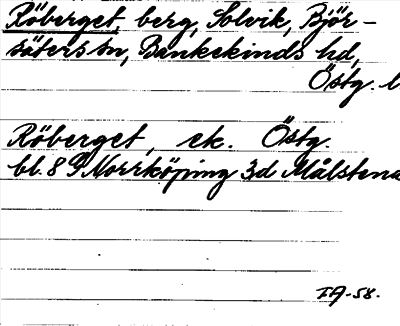 Röberget, berg, Solvik, Björ-
säters sn, Bankekinds hd,
Östg. l
Röberget, ek. Östg.
bl. 8 G Norrköping 3d Målstena
IA-58.